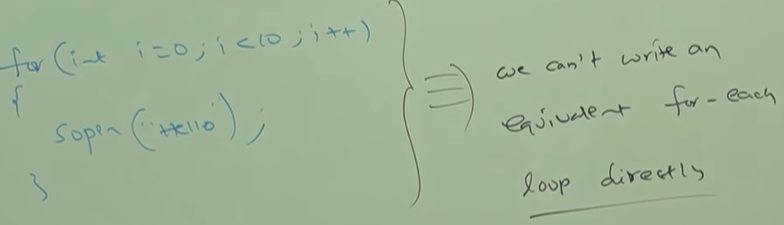 for (int i=0; i<10; i++)
{
Sopln ("Hello");
}
we can't write an
equivalent for-each
loop directly